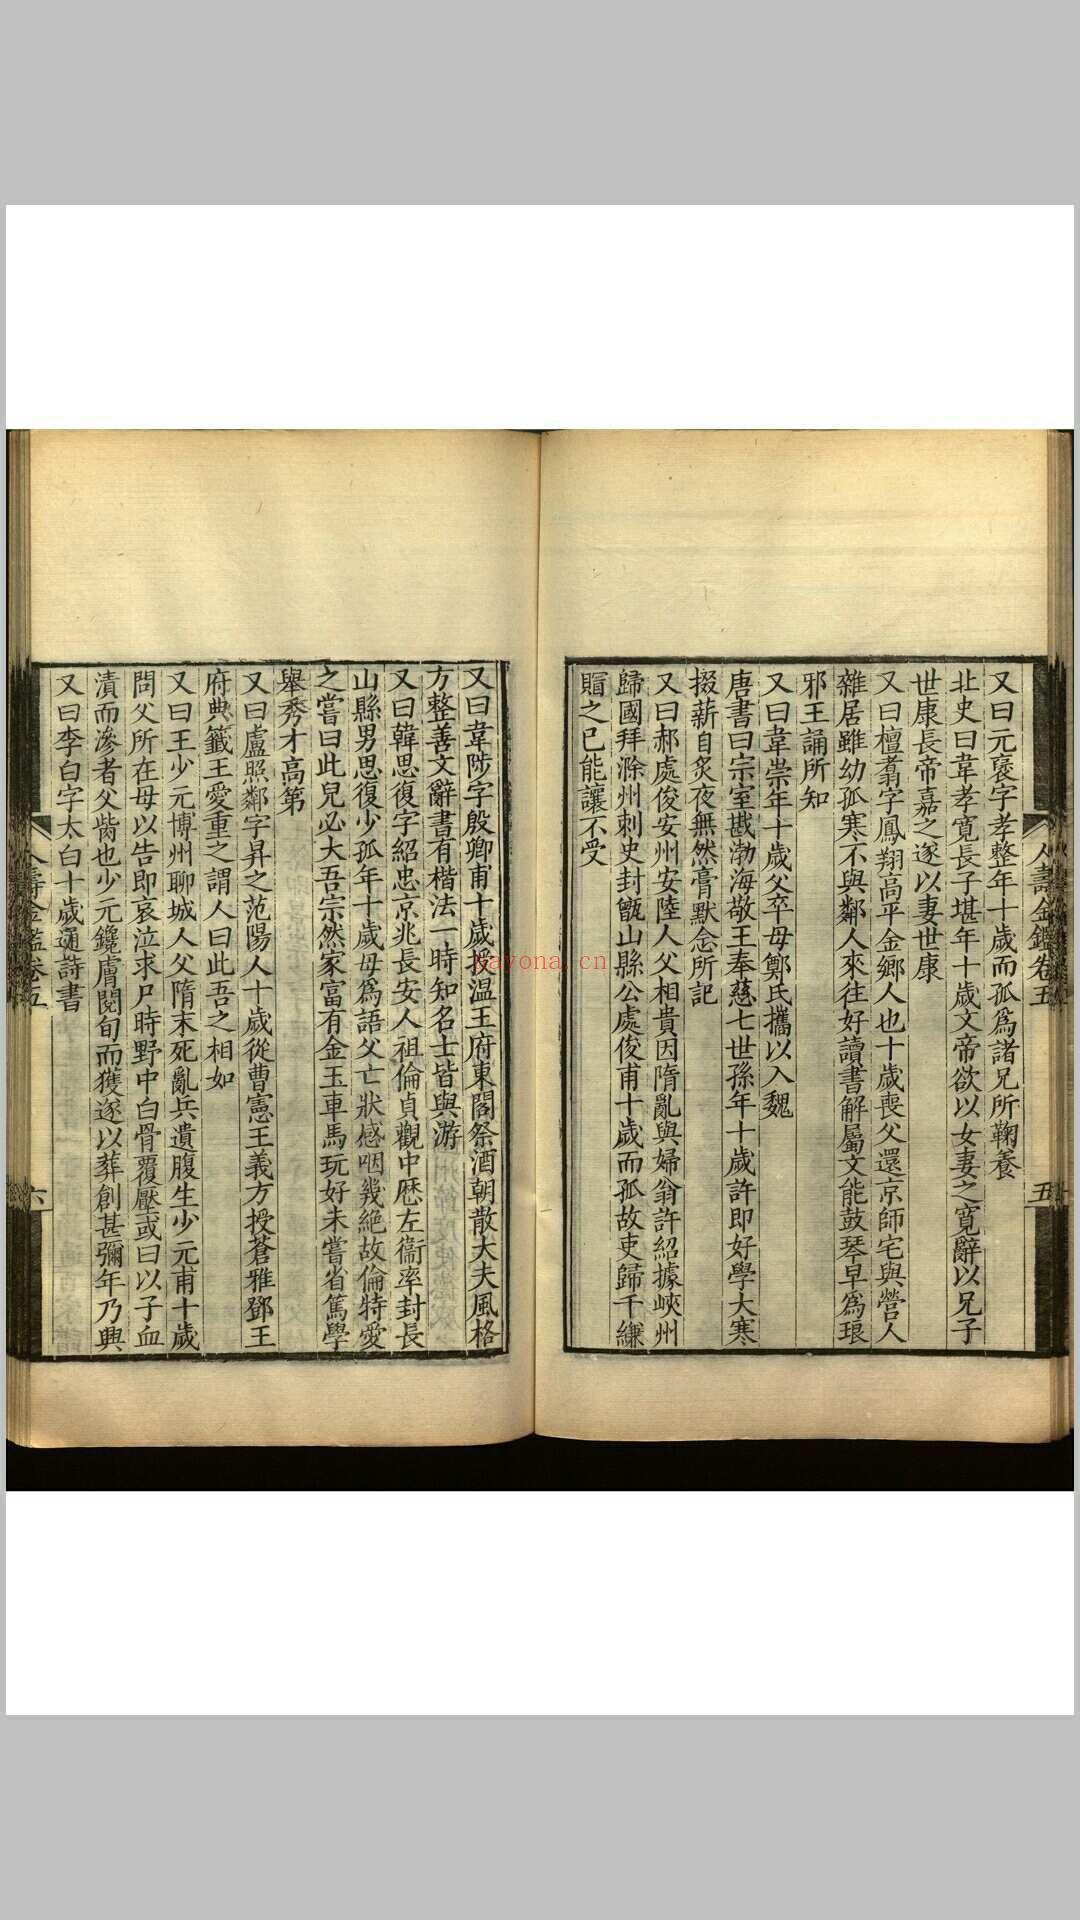 人壽金鑑卷五
五
又曰元褒字孝整年十歲而孤爲諸兄所鞠養
北史曰韋孝寬長子堪年十歲文帝欲以女妻之寬辭以兄子
世康長帝嘉之遂以妻世康
又曰檀翥字鳳翔高平金鄉人也十歲喪父還京師宅與營人
雜居雖幼孤寒不與鄰人來往好讀書解屬文能鼓琴早爲琅
邪王誦所知
又曰韋崇年十歲父卒母鄭氏攜以入魏
唐書曰宗室戡渤海敬王奉慈七世孫年十歲許即好學大寒
掇薪自炙夜無然膏默念所記
又曰郝處俊安州安陸人父相貴因隋亂與婦翁許紹據峽州
歸國拜滁州刺史封甑山縣公處俊甫十歲而孤故吏歸千縑
賵之已能讓不受
又曰韋陟字殷卿甫十歲授温王府東閣祭酒朝散大夫風格
方整善文辭書有楷法一時知名士皆與游
又曰韓思復字紹忠京兆長安人祖倫貞觀中歷左衞率封長
山縣男思復少孤年十歲母爲語父亡狀感咽幾絶故倫特愛
之嘗曰此兒必大吾宗然家富有金玉車馬玩好未嘗省篤學
舉秀才高第
又曰盧照鄰字昇之范陽人十歲從曹憲王義方授蒼雅鄧王
府典籤王愛重之謂人曰此吾之相如
又曰王少元博州聊城人父隋末死亂兵遺腹生少元甫十歲
問父所在母以告即哀泣求尸時野中白骨覆壓或曰以子血
漬而滲者父胔也少元鑱膚閱旬而獲遂以葬創甚彌年乃興
又曰李白字太白十歲通詩書
人壽金鑑卷五
六
kayona.cn